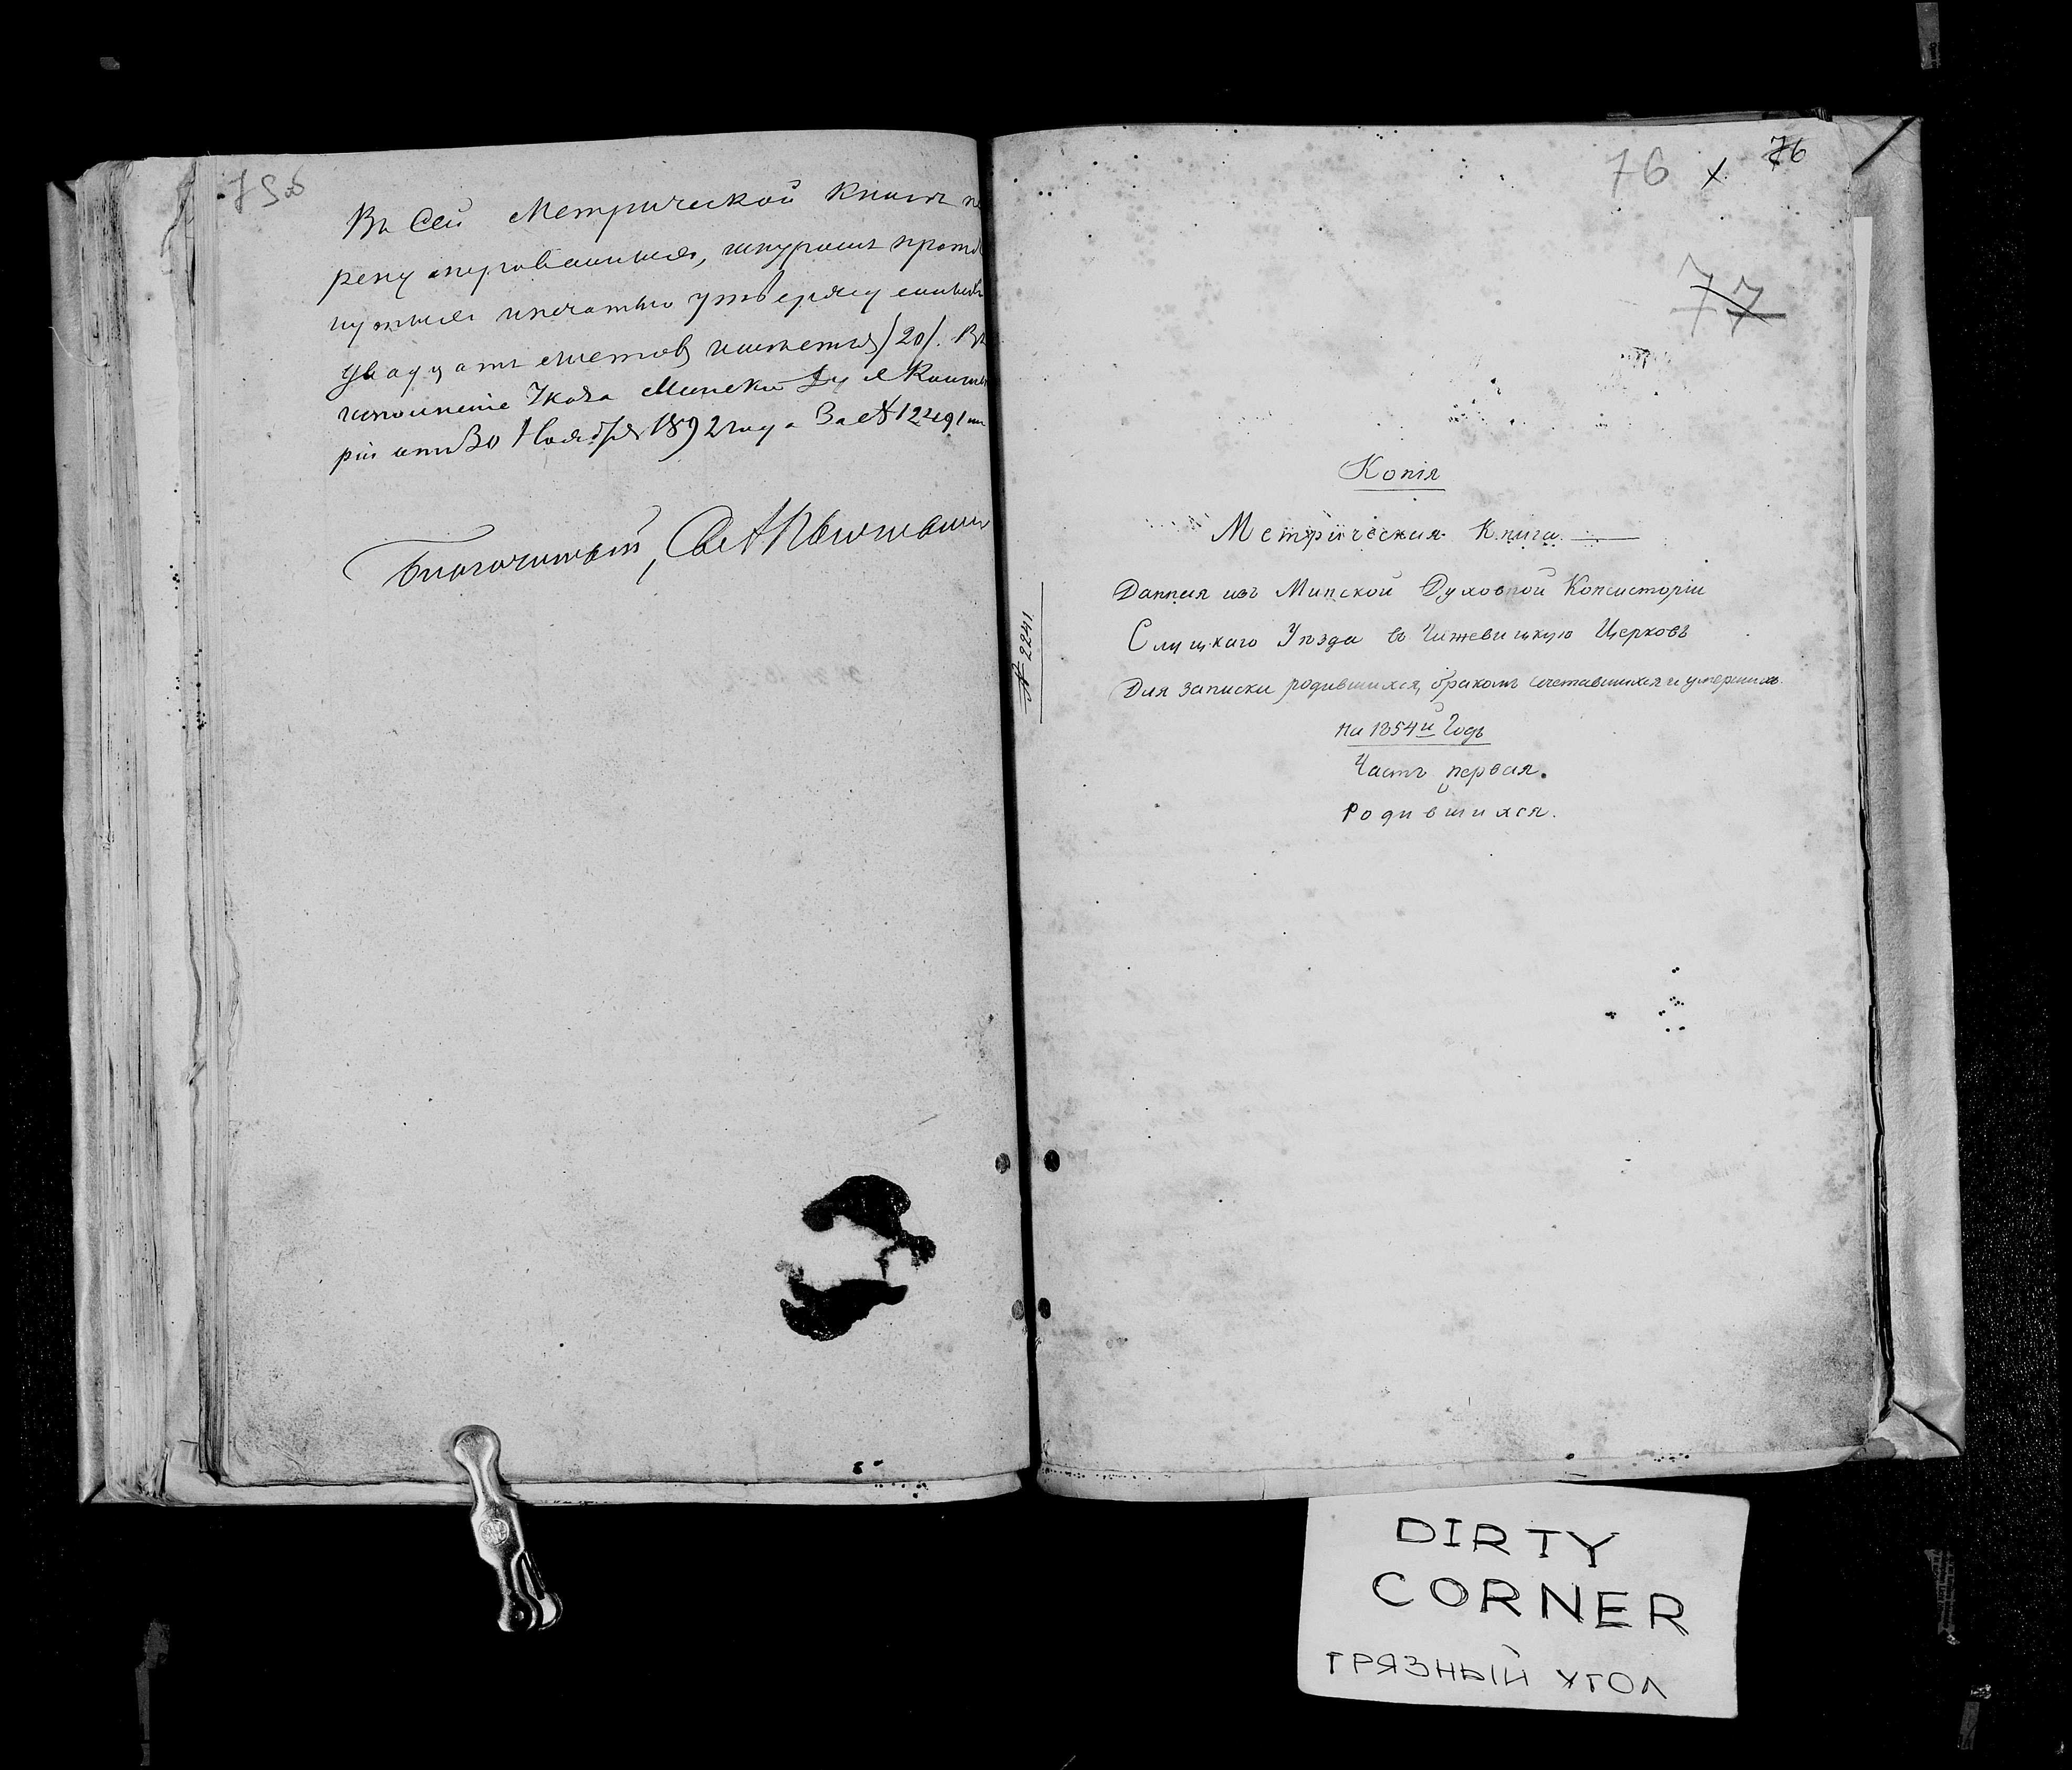 75об
Въ Сей Метрической Книгѣ пе
ренумерованныхъ, шнуромъ протя
нутыхъ и печатью утвержденныхъ
двадцать листовъ имѣется /20/. Въ
исполненіе Указа Минской Дух. Консисто
ріи отъ 30 Ноября 1892 года За №
Благочинный,
76 х 76
77
Копія
Метрическая Книга
Данная изъ Минской Духовной Консисторіи
Слуцкаго Уѣзда въ Чижевицкую Церковь
Для записки родившихся, бракомъ сочетавшихся и умершихъ
на 1854й Годъ
Часть первая.
Родившихся.
№ 2241
DIRTY
CORNER
ГРЯЗНЫЙ УГОЛ